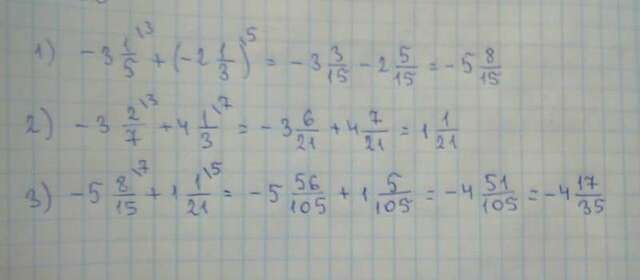 1) -3 1/5 \3 + (-2 1/3) \5 = -3 3/15 - 2 5/15 = -5 8/15
2) -3 2/7 \3 + 4 1/3 \7 = -3 6/21 + 4 7/21 = 1 1/21
3) -5 8/15 \7 + 1 1/21 \5 = -5 56/105 + 1 5/105 = -4 51/105 = -4 17/35